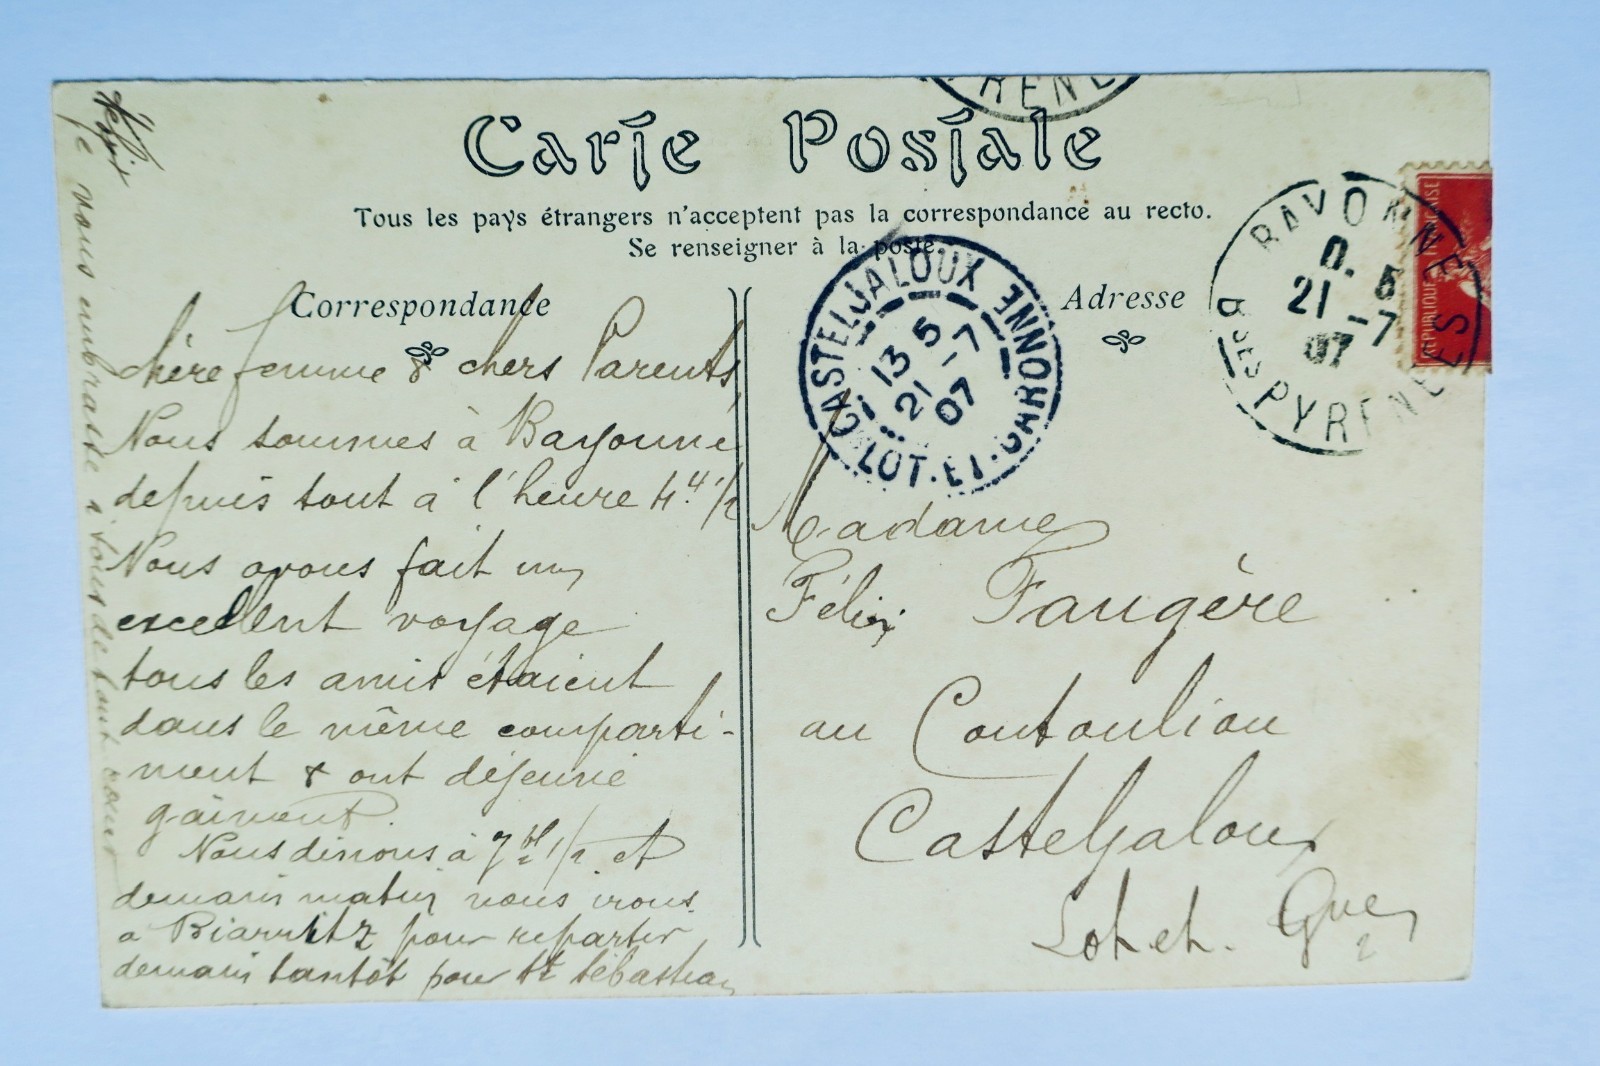 Carte Postale
Tous les pays étrangers n'acceptent pas la correspondance au recto.
Se renseigner à la poste.
Correspondance
Adresse
Chère femme & chers Parents
Nous sommes à Bayonne
depuis tout à l'heure 4 H. 1/2
Nous avons fait un
excellent voyage
tous les amis étaient
dans le même comparti-
ment & ont déjeuné
gaiment.
Nous dinons à 7 H 1/2 et
demain matin nous irons
a Biarritz pour repartir
demain tantôt pour St Sébastian
Je vous embrasse tous de tout cœur
Madame
Félix Faugère
au Coutouliou
Casteljaloux
Lot et. Gne
CASTELJALOUX
13 5
21 - 7
07
LOT-ET-GARONNE
BAYONNE
5
21 - 7
07
Bses PYRENEES
RÉPUBLIQUE FRANÇAISE
PYRENE